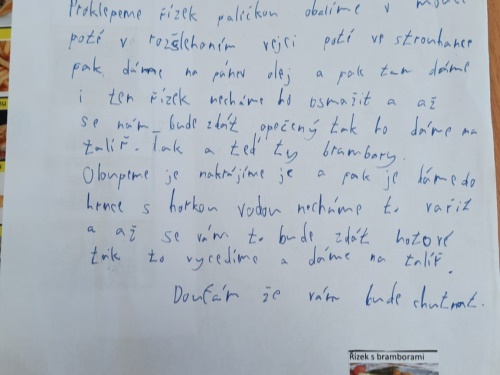 Proklepeme řízek paličkou obalíme v mouce
poté v rozšlehaním vejci poté ve strouhance
pak dáme na pánev olej a pak tam dáme
i ten řízek necháme ho osmažit a až
se nám bude zdát opečený tak ho dáme na
talíř. Tak a teď ty brambory.
Oloupeme je nakrájíme je a pak je dáme do
hrnce s horkou vodou necháme to vařit
a až se vám to bude zdát hotové
ták to vycedíme a dáme na talíř.
Doufám že vám bude chutnat.
Řízek s bramborami